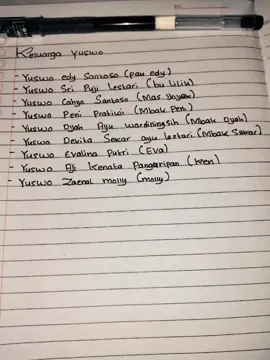 Keluarga Yuswo
- Yuswo edy Santoso (pak edy)
- Yuswo Sri Puji Lestari (bu lilik)
- Yuswo Cahyo Santoso (Mas Yoyok)
- Yuswo Peni Pratiwi (Mbak Peni)
- Yuswo Dyah Ayu Wardiningsih (Mbak Dyah)
- Yuswo Devita Sekar ayu lestari (Mbak Sekar)
- Yuswo Evalina Putri (Eva)
- Yuswo Aji Kenata Pangaripan (Ken)
- Yuswo Zaenal molly (molly)